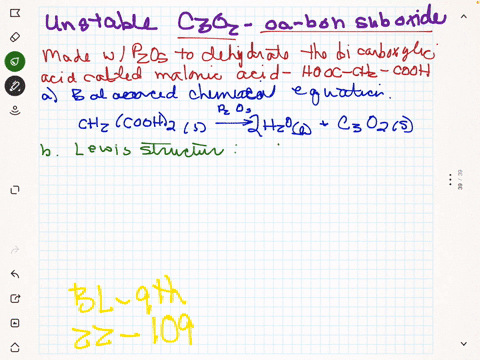 Unstable C3O2 - carbon suboxide
Made w/ P2O5 to dehydrate the bicarboxylic
acid called malonic acid - HOOC-CH2-COOH
a) Balanced chemical equation.
P2O5
CH2(COOH)2(s) → 2H2O(l) + C3O2(s)
b. Lewis structur:
BL-9th
22-109
39 / 39